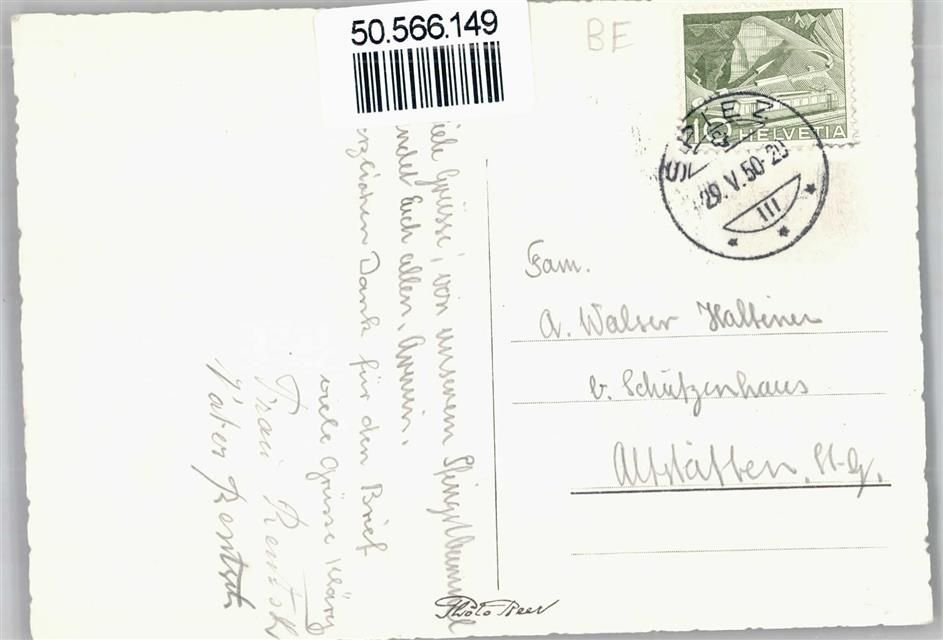 50.566.149
BE
10 HELVETIA
SPIEZ
29.V.50-20
III
Viele Grüsse, von unserem
sendet Euch allen, Armin.
Herzlichen Dank für den Brief
viele Grüsse Kläry
Frau Rentsch
Vater Rentsch
Fam.
A. Walser Haltiner
b. Schützenhaus
Altstätten, St-G.
Photo Beer